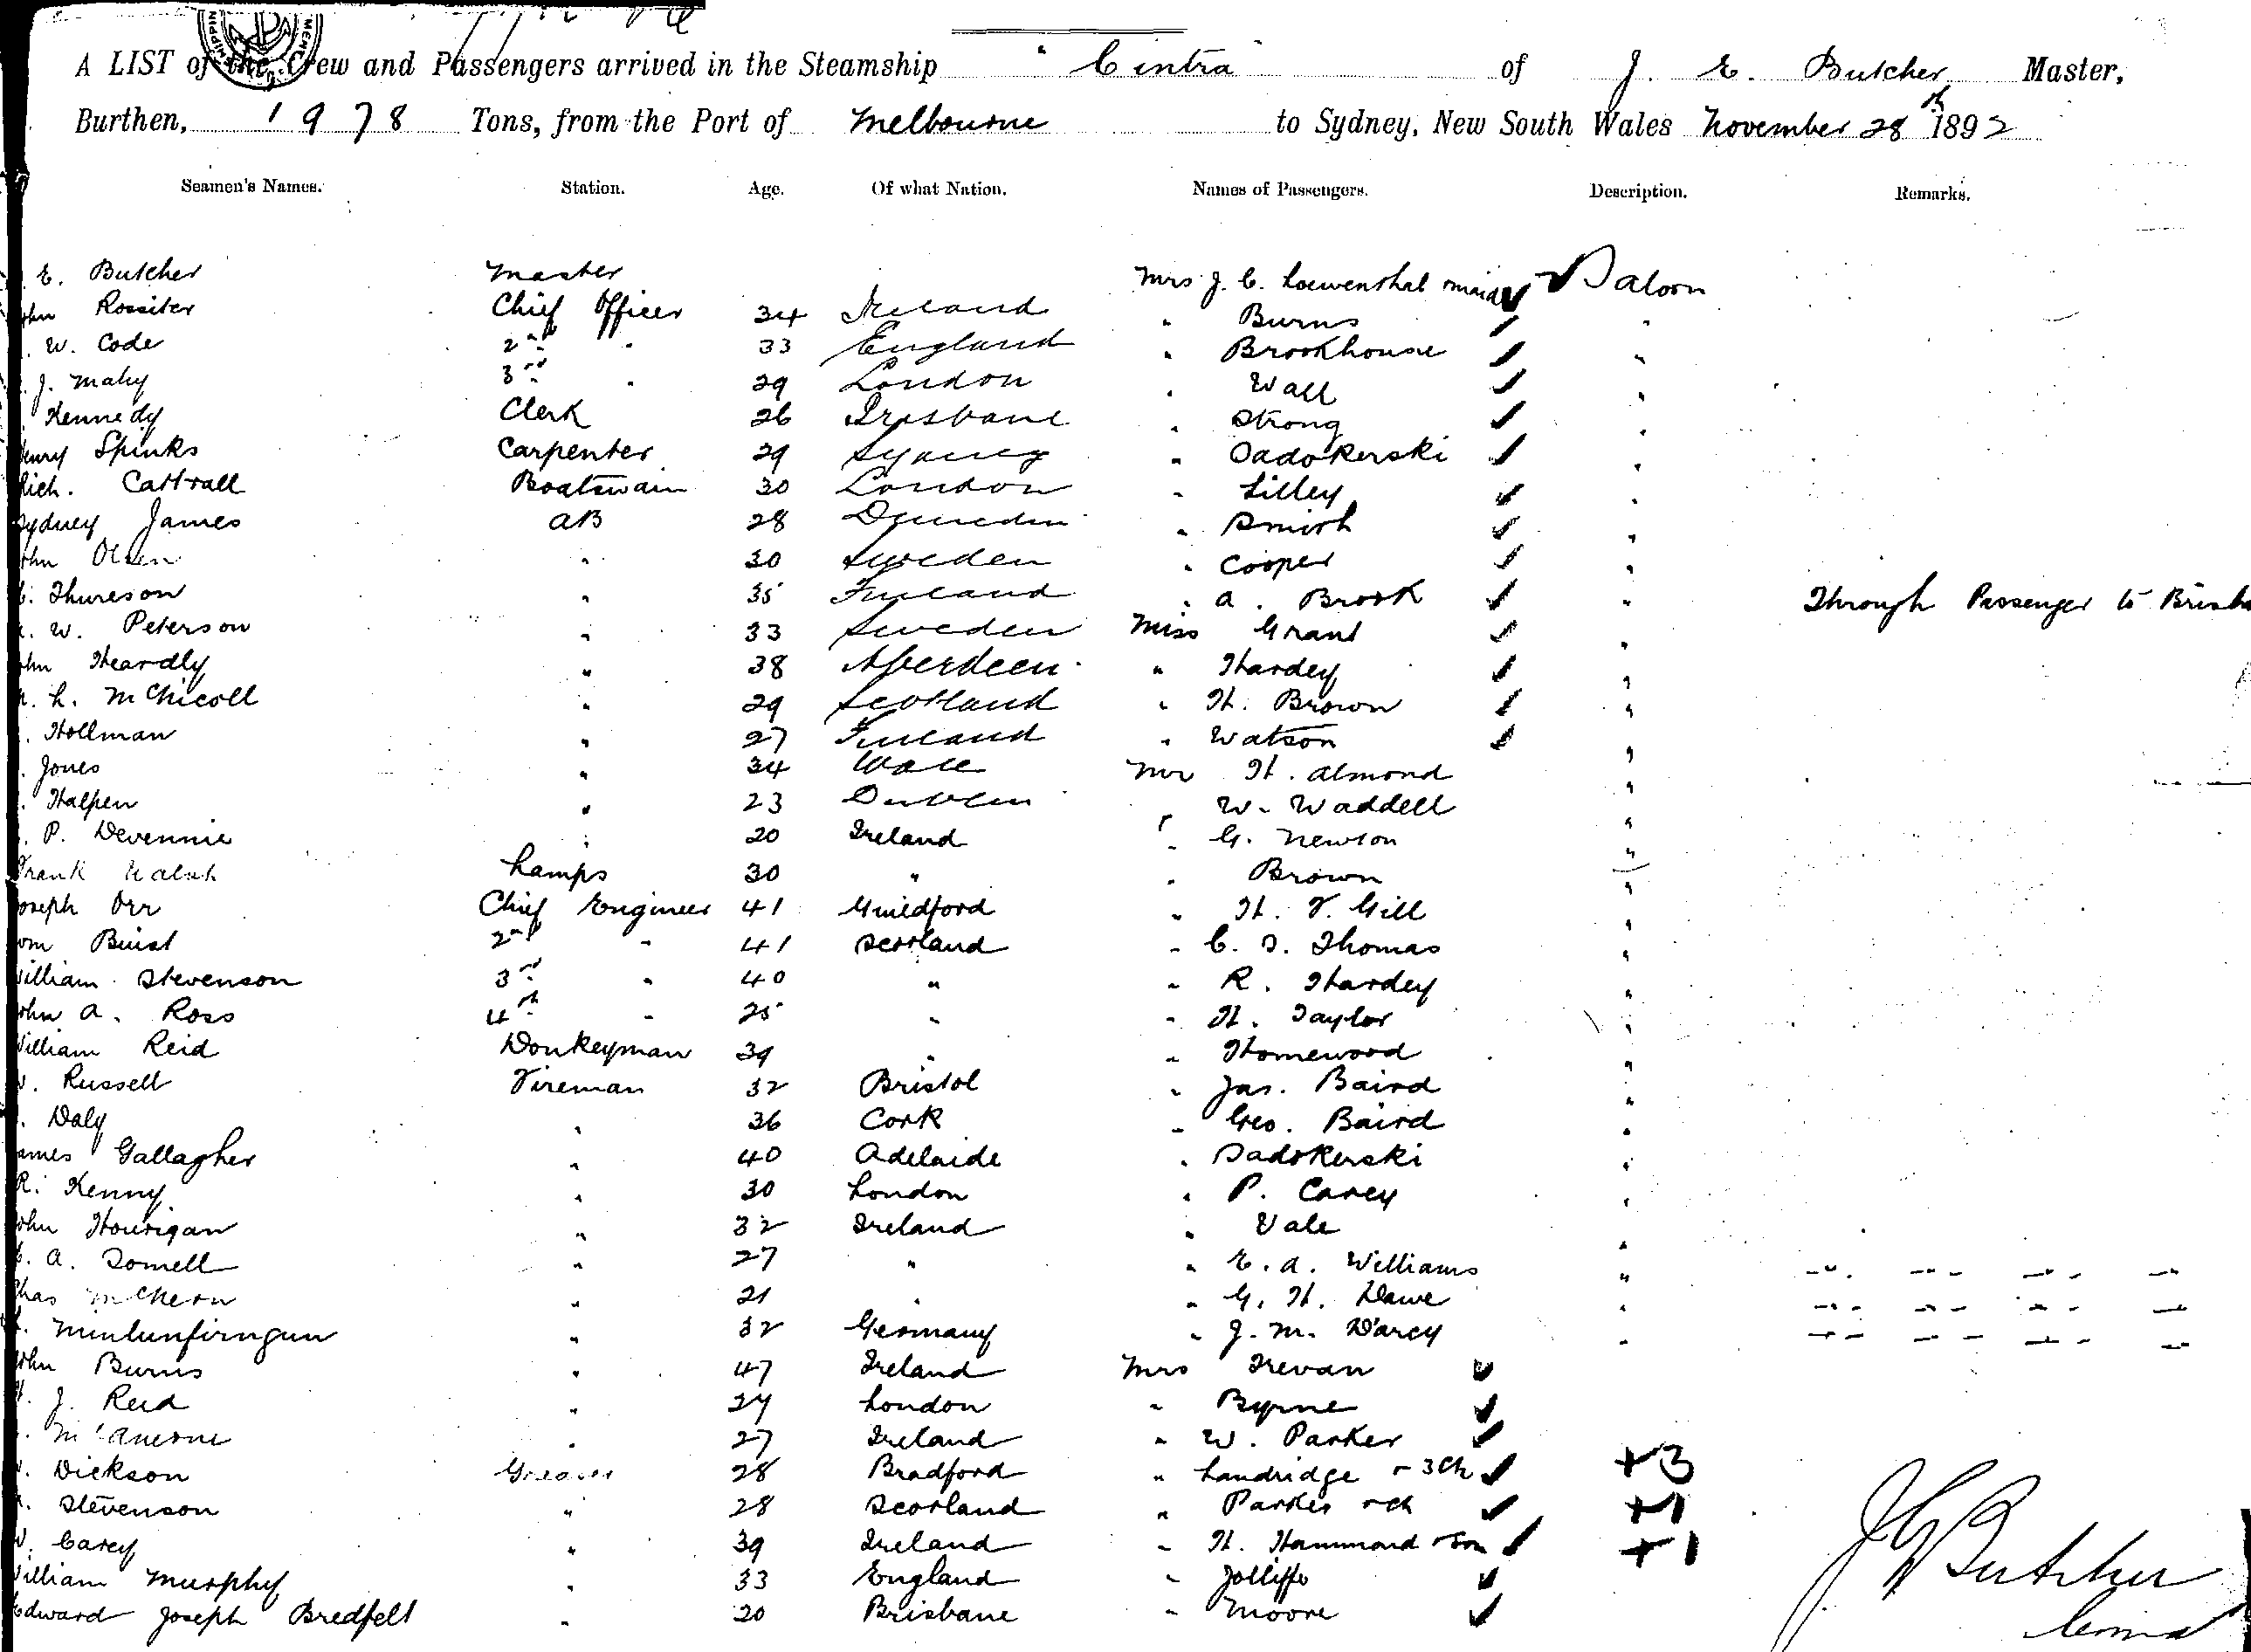 A LIST of the Crew and Passengers arrived in the Steamship "Cintra" of J. E. Butcher Master,
Burthen, 1978 Tons, from the Port of Melbourne to Sydney, New South Wales November 28th 1892
Seamen's Names. Station. Age. Of what Nation. Names of Passengers. Description. Remarks.
E. Butcher Master Mrs J. C. Loewenthal maid Saloon
Rossiter Chief Officer 34 Ireland " Burns "
W. Code 2nd " 33 England " Brookhouse "
J. Mahy 3rd " 29 London " Wall "
Kennedy Clerk 26 Brisbane " Strong "
Spinks Carpenter 29 Sydney " Sadokerski "
Rich. Cattrall Boatswain 30 London " Lilley "
Sydney James AB 28 Dunedin " Smith "
Olsen " 30 Sweden " Cooper "
Thureson " 35 Finland " A. Brook " Through Passenger to
W. Peterson " 33 Sweden Miss Grant "
Heardly " 38 Aberdeen " Hardey "
L. McNicoll " 29 Scotland " H. Brown "
Hollman " 27 Finland " Watson "
Jones " 34 Mr H. Almond "
Halpen " 23 Dublin " W. Waddell "
P. Devennie " 20 Ireland " G. Newton "
Frank Walsh Lamps 30 " " Brown "
Joseph Orr Chief Engineer 41 Guildford " H. F. Gill "
Buist 2nd " 41 Scotland " C. S. Thomas "
William Stevenson 3rd " 40 " " R. Hardey "
John A. Ross 4th " 25 " " H. Taylor "
William Reid Donkeyman 39 " " Homewood "
Russell Fireman 32 Bristol " Jas. Baird "
Daly " 36 Cork " Geo. Baird "
James Gallagher " 40 Adelaide " Sadokerski "
R. Kenny " 30 London " P. Carey "
John Hourigan " 32 Ireland " Vale "
A. Somell " 27 " " E. A. Williams " " " " "
Chas " 21 " " G. H. Dawe " " " " "
" 32 Germany " J. M. D'Arcy " " " " "
John Burns " 47 Ireland Mrs Trevan
J. Reid " 24 London " Byrne
" 27 Ireland " W. Parker
Dickson Greaser 28 Bradford " Landridge + 3 Ch +3
Stevenson " 28 Scotland " Parker + ch +1
Carey " 39 Ireland " H. Hammond + son +1
William Murphy " 33 England " Jolliffe
Edward Joseph Bredfelt " 20 Brisbane " Moore
J E Butcher